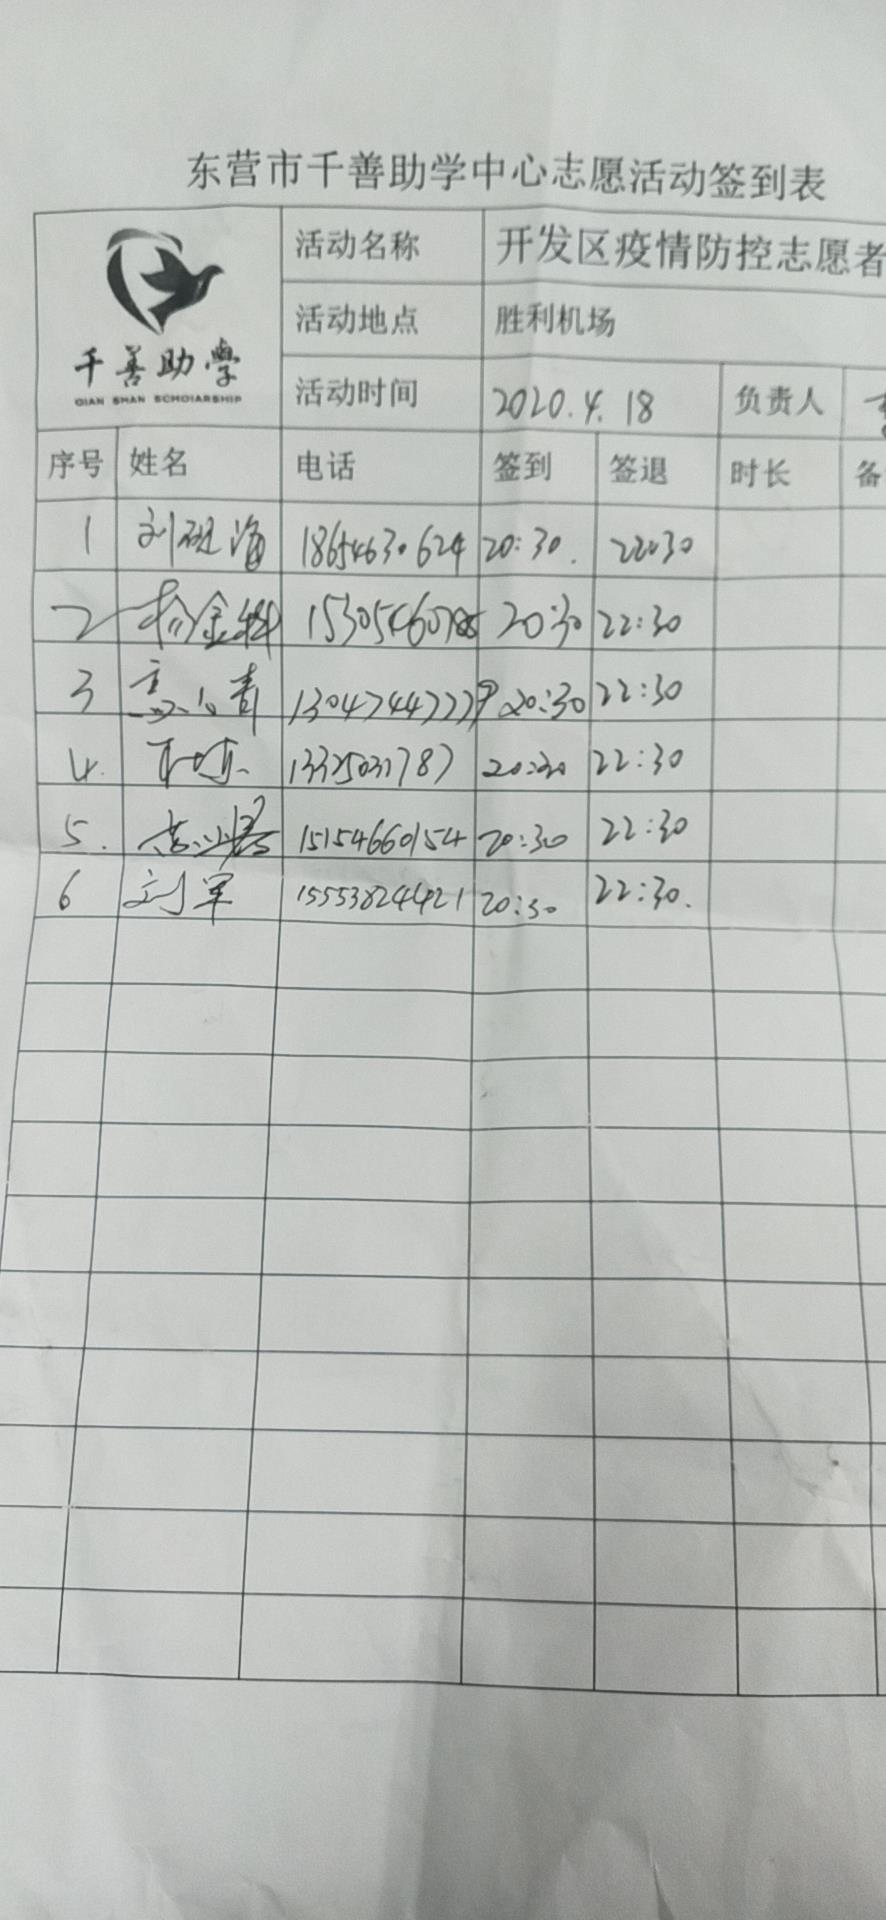 东营市千善助学中心志愿活动签到表
千善助學
QIAN SHAN SCHOIARSHIP
活动名称 开发区疫情防控志愿者
活动地点 胜利机场
活动时间 2020.4.18 负责人
序号 姓名 电话 签到 签退 时长 备
1 刘砚海 18654630624 20:30. 22:30
2 20:30 22:30
3 20:30 22:30
4. 20:30 22:30
5. 15154660154 20:30 22:30
6 刘军 15553824421 20:30 22:30.